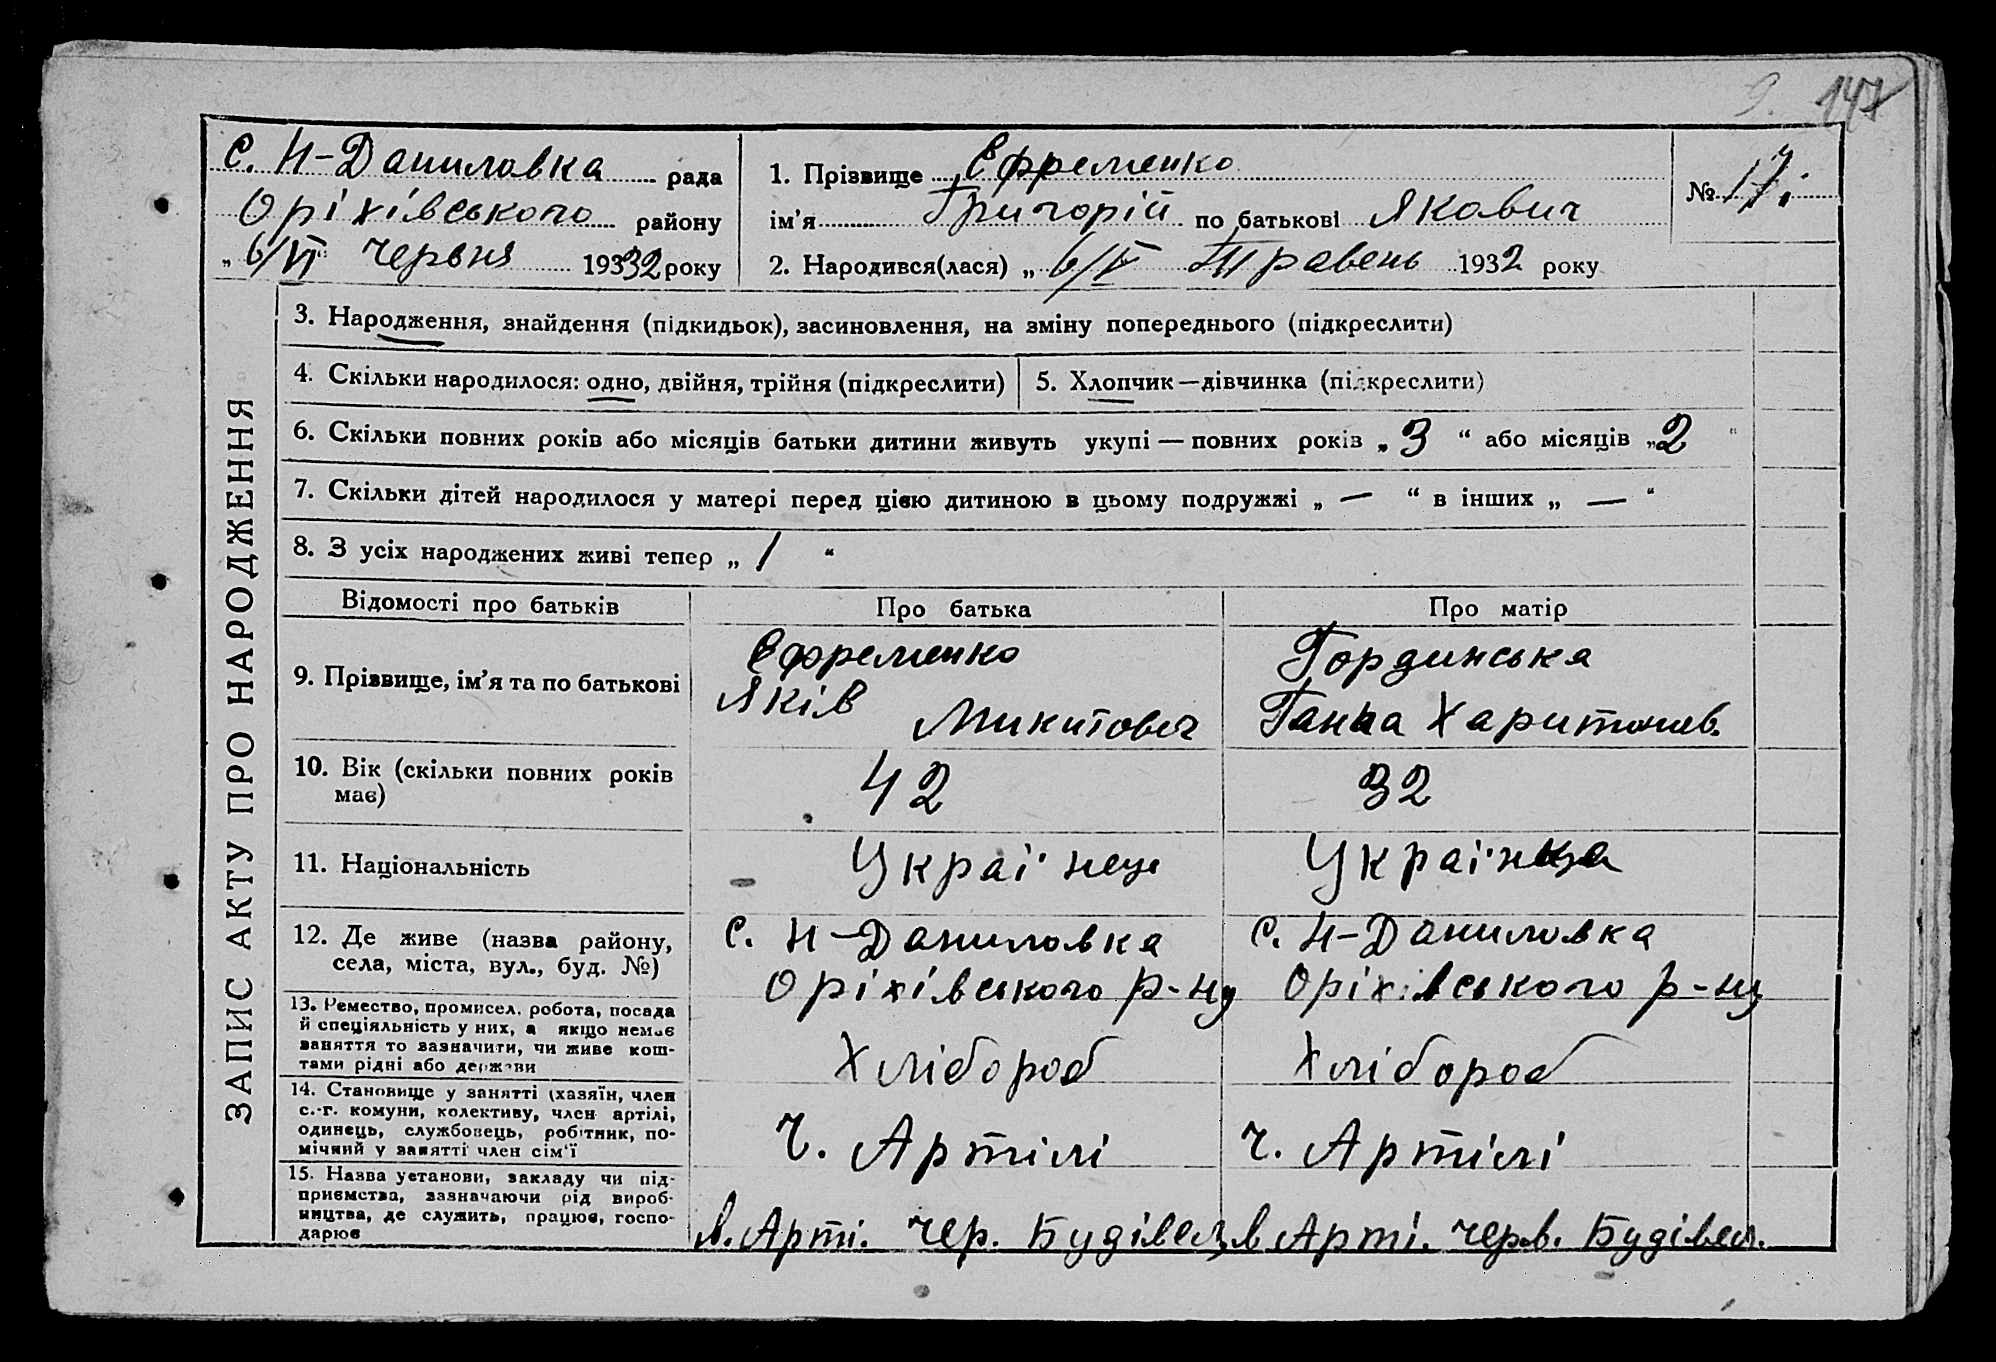 147
с. Н-Даниловка рада
Оріхівського району
„ 6/VI червня 19332 року
1. Прізвище Єфременко
ім’я Григорій по батькові Якович
2. Народився(лася) „ 6/V Травень 1932 року
№ 17
ЗАПИС АКТУ ПРО НАРОДЖЕННЯ
3. Народження, знайдення (підкидьок), засиновлення, на зміну попереднього (підкреслити)
4. Скільки народилося: одно, двійня, трійня (підкреслити)
5. Хлопчик—дівчинка (підкреслити)
6. Скільки повних років або місяців батьки дитини живуть укупі — повних років „ 3 “ або місяців „ 2 “
7. Скільки дітей народилося у матері перед цією дитиною в цьому подружжі „ — “ в інших „ — “
8. З усіх народжених живі тепер „ 1 “
Відомості про батьків
Про батька
Про матір
9. Прізвище, ім’я та по батькові
Єфременко
Яків
Микитович
Гординська
Ганна Харитонів.
10. Вік (скільки повних років
має)
42
32
11. Національність
Украї́нець
Украї́нка
12. Де живе (назва району,
села, міста, вул., буд. №)
с. Н-Даниловка
Оріхівського р-ну
с. Н-Даниловка
Оріхівського р-ну
13. Ремество, промисел, робота, посада
й спеціяльність у них, а якщо немає
заняття то зазначити, чи живе кош-
тами рідні або держави
Хлібороб
Хлібороб
14. Становище у занятті (хазяїн, член
с.-г. комуни, колективу, член артілі,
одинець, службовець, робітник, по-
мічний у занятті член сім’ї
Ч. Артілі
Ч. Артілі
15. Назва установи, закладу чи під-
приємства, зазначаючи рід вироб-
ництва, де служить, працює, госпо-
дарює
в. Арті. чер. Будівел
в Арті. черв. Будівел.